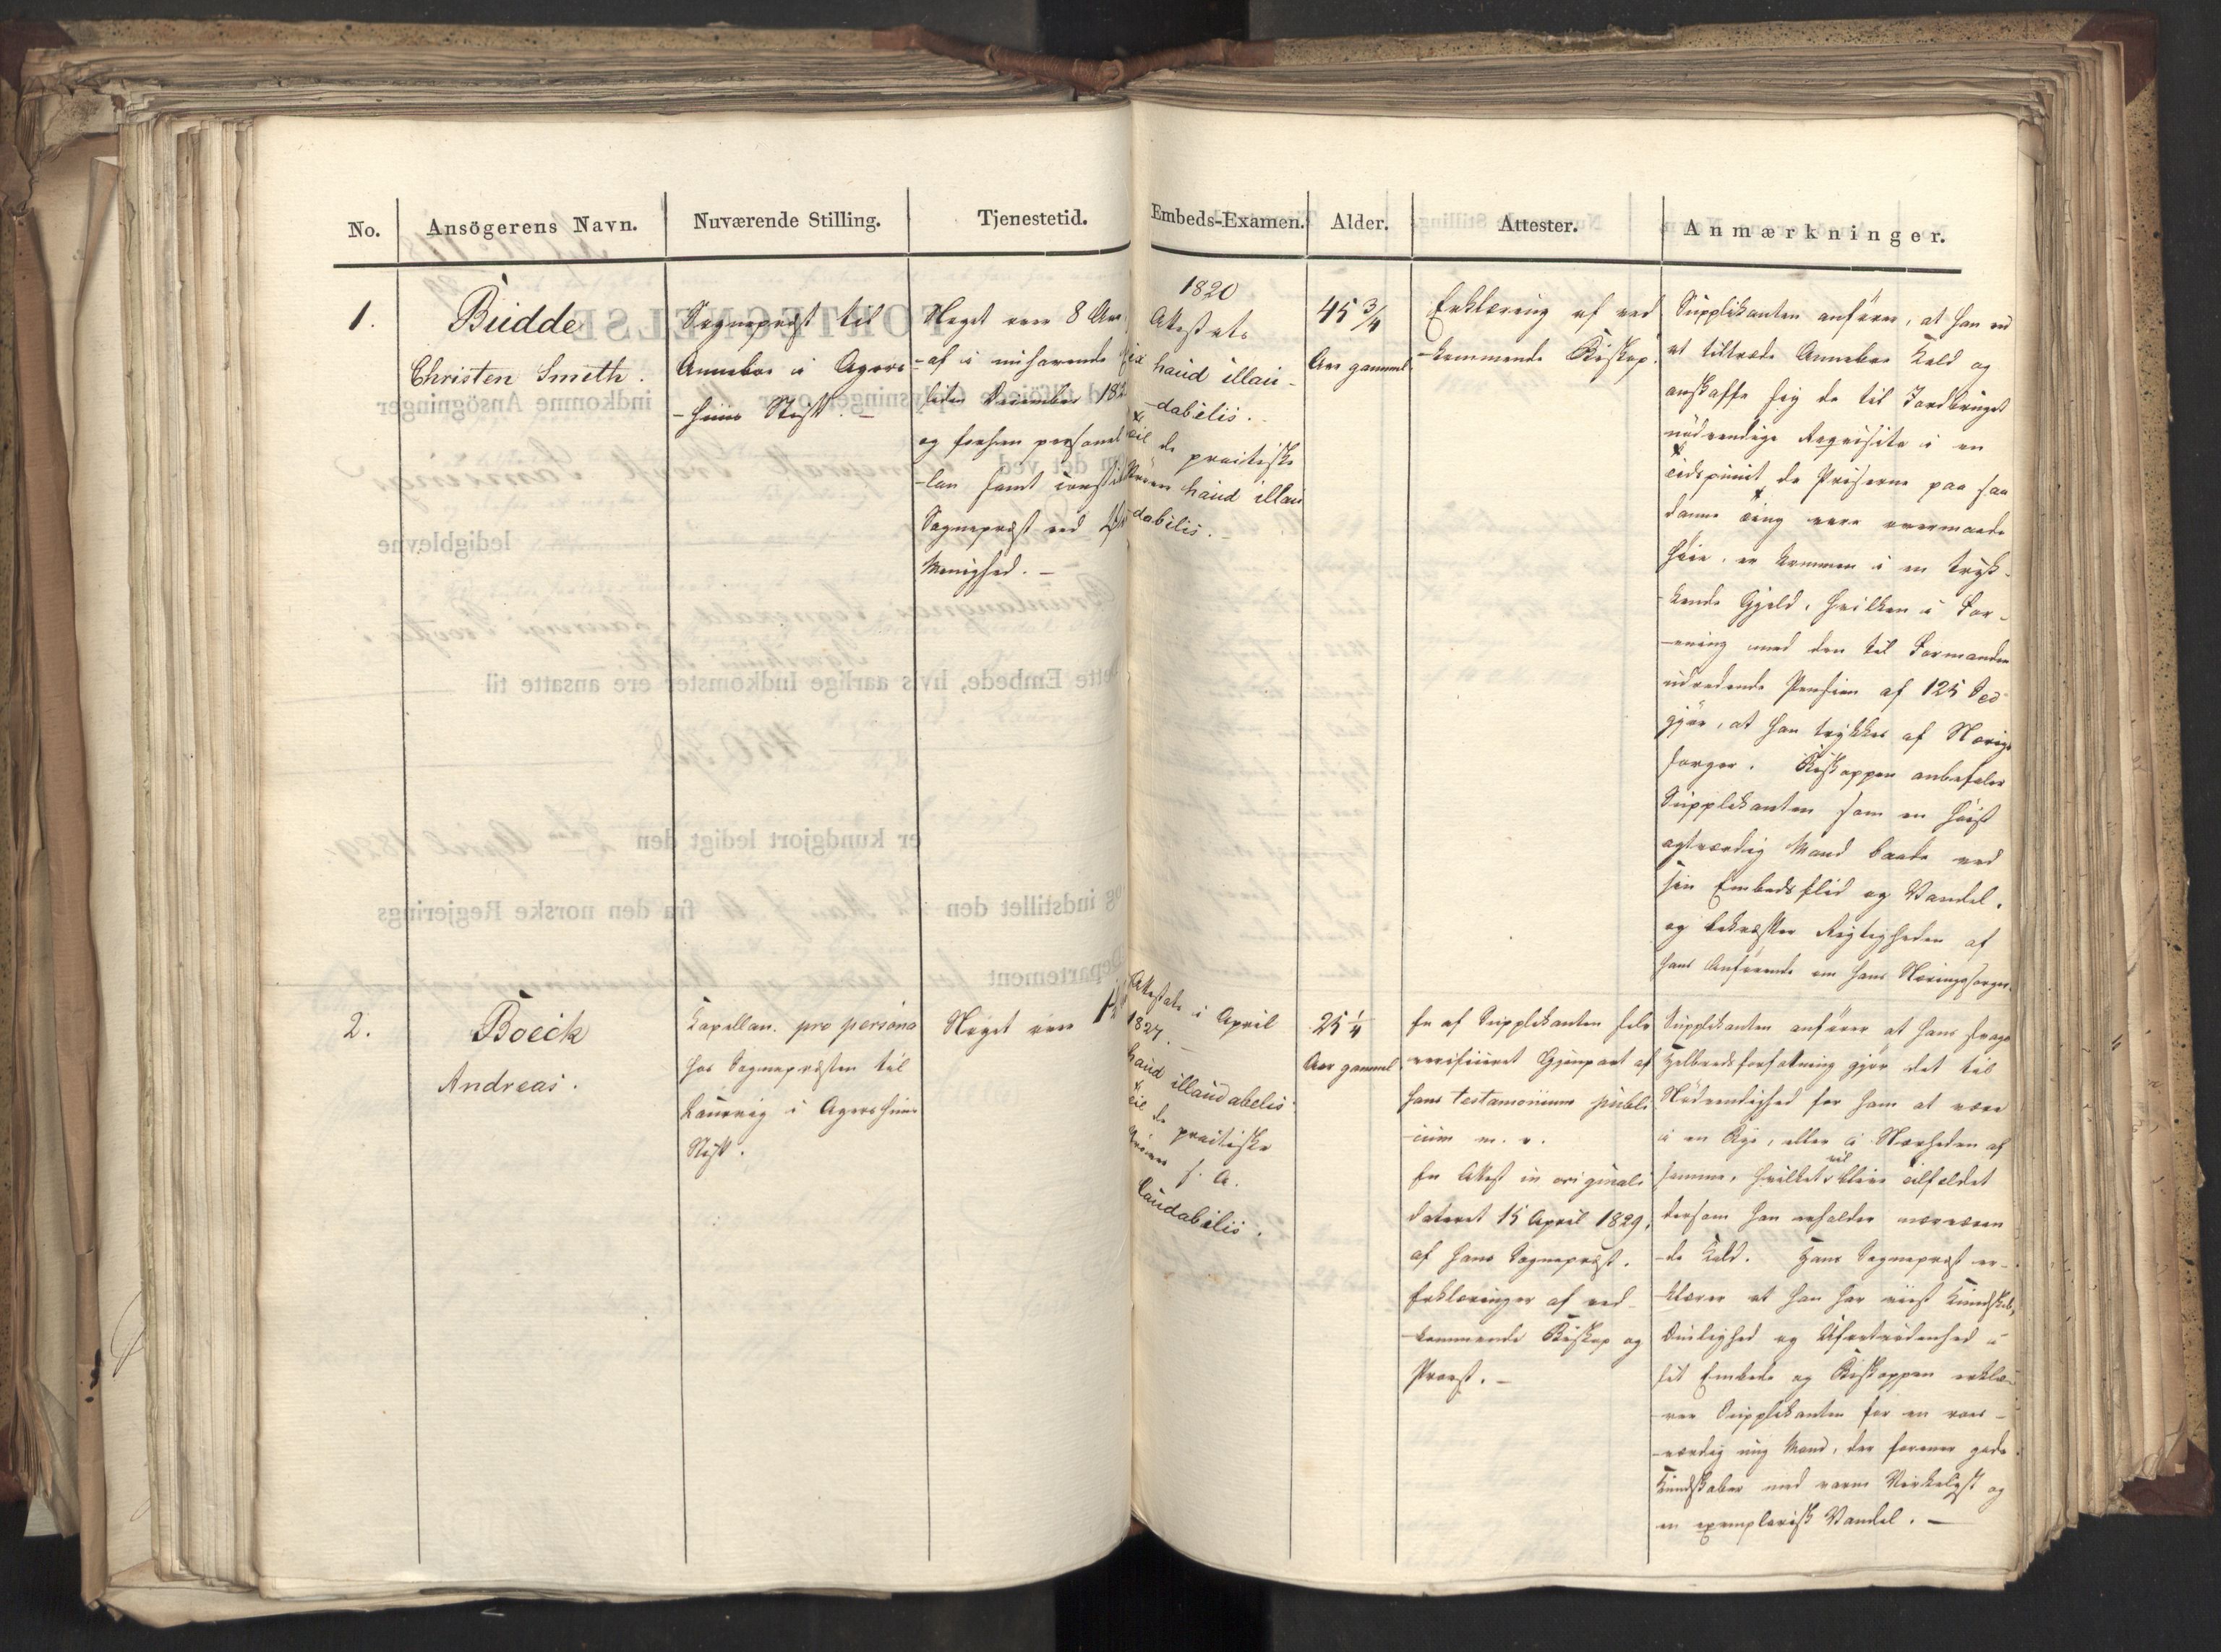 No.
Ansögerens Navn.
Nuværende Stilling.
Tjenestetid.
Embeds-Examen.
Alder.
Attester.
Anmærkninger.
1.
Budde
Christen Smith.
Sognepræst til
Anneboe i Agers-
-huus Stift. -
Noget over 8 Aar
-af i nuhavende
siden December 182
og forhen personel
-lan samt const
Sognepræst ved
Menighed. -
1820
Attestats
haud illau-
-dabilis.
til de practiske
Prøver haud illau
dabilis. -
45 3/4
Aar gammel
Erklæring af ved
-kommende Biskop.
Supplikanten anförer, at han ved
at tiltræde Anneboe Kald og
anskaffe sig de til Jordbruget
nödvendige Requisita i en
Tidspunct, da Priserne paa saa
danne Ting vare overmaade
höie, er kommen i en tryk-
kende Gjeld, hvilken i For-
-ening med den til Formanden
udredende Pension af 125 Spd
gjör, at han trykkes af Nærings
sorger. Biskoppen anbefaler
Supplikanten som en höist
agtværdig Mand baade ved
sin Embedsflid og Vandel,
og bekræfter Rigtigheden af
hans Anförende om hans Næringssorger.
2.
Boeck
Andreas.
Capellan pro persona
hos Sognepræsten til
Laurvig i Agershuus
Stift.
Noget over 1½
Attestats i April
1827. -
haud illaudabilis
til de practiske
Prøver s. A.
laudabilis.
25 1/4
Aar gammel
En af Supplikanten selv
verificeret Gjenpart af
hans testamonium publi
-cum m. v.
En Attest in originali
dateret 15 April 1829,
af hans Sognepræst.
Erklæringer af ved-
-kommende Biskop og
Provst. -
Supplikanten anförer at hans svage
Helbredsforfatning gjör det til
Nödvendighed for ham at være
i en Bye, eller i Nærheden af
samme, hvilket vil blive Tilfældet
dersom han erholder nærværen
-de Kald. Hans Sognepræst er-
-klærer at han har viist Kundskab,
Duelighed og Ufortrödenhed i
sit Embede og Biskoppen erklæ-
-rer Supplikanten for en roes-
-værdig ung Mand, der forener gode
Kundskaber med varm Virkelyst og
en exemplarisk Vandel. -